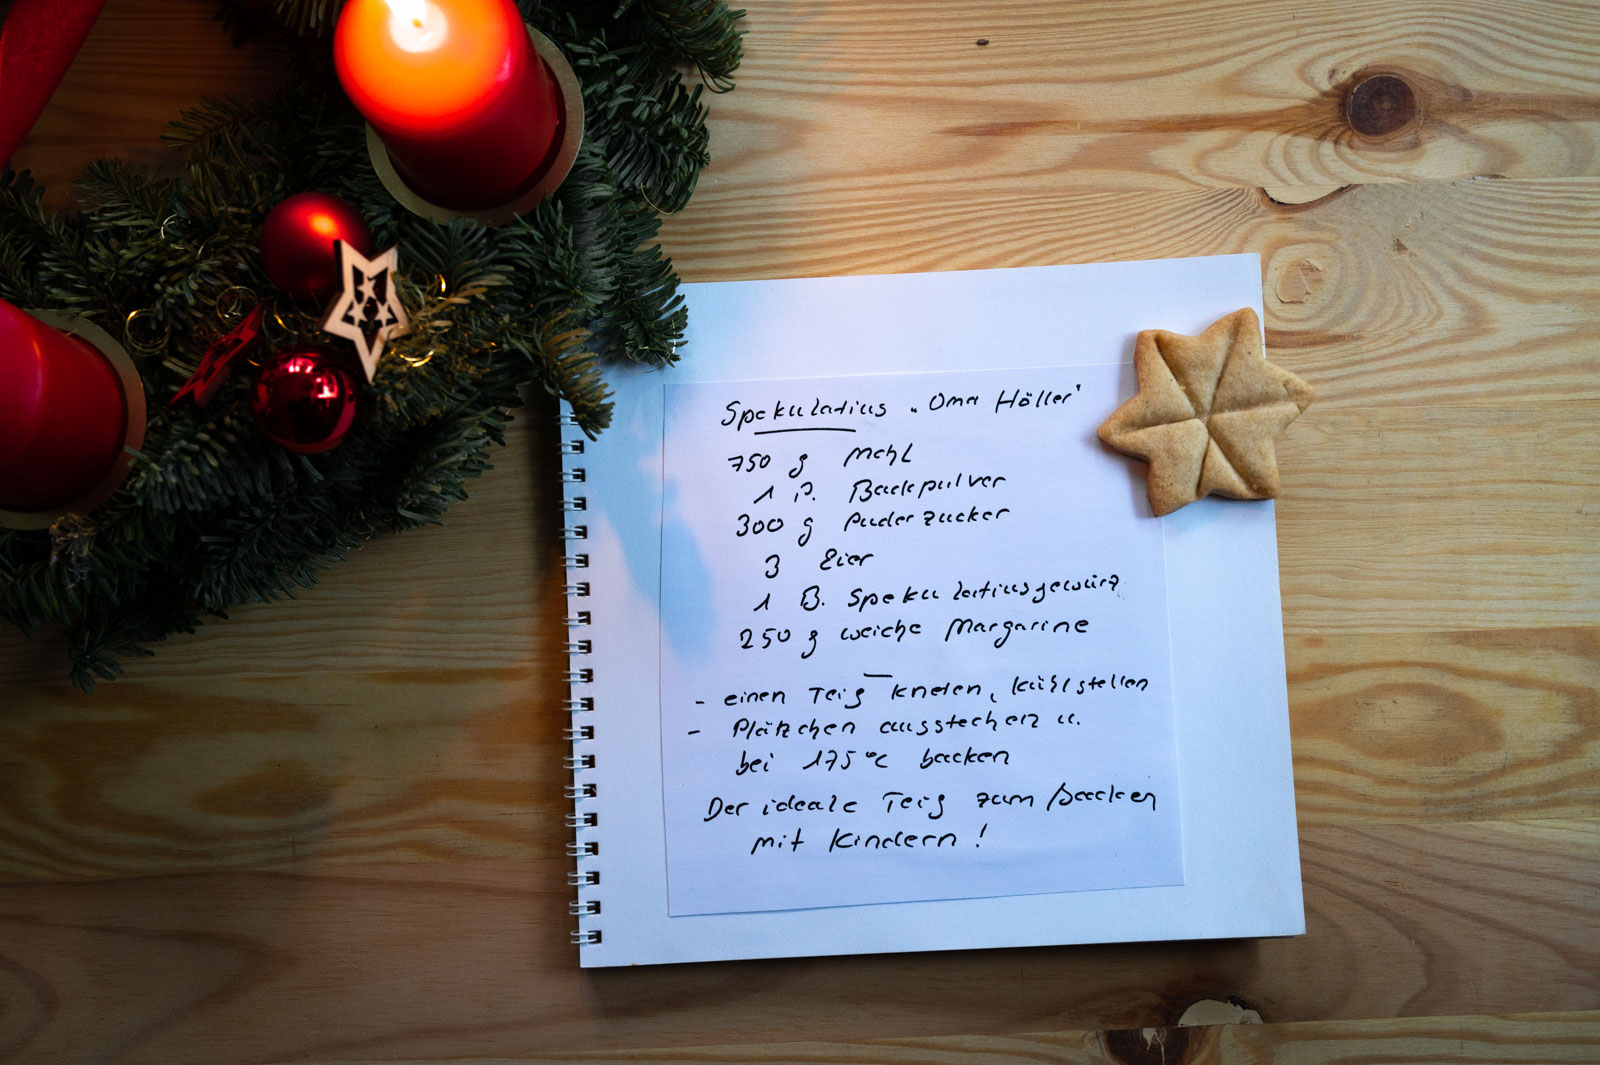 Spekulatius „Oma Höller"
750 g Mehl
1 P. Backpulver
300 g Puderzucker
3 Eier
1 B. Spekulatiusgewürz
250 g weiche Margarine
- einen Teig kneten, kühlstellen
- Plätzchen ausstechen u.
bei 175°C backen
Der ideale Teig zum backen
mit Kindern!